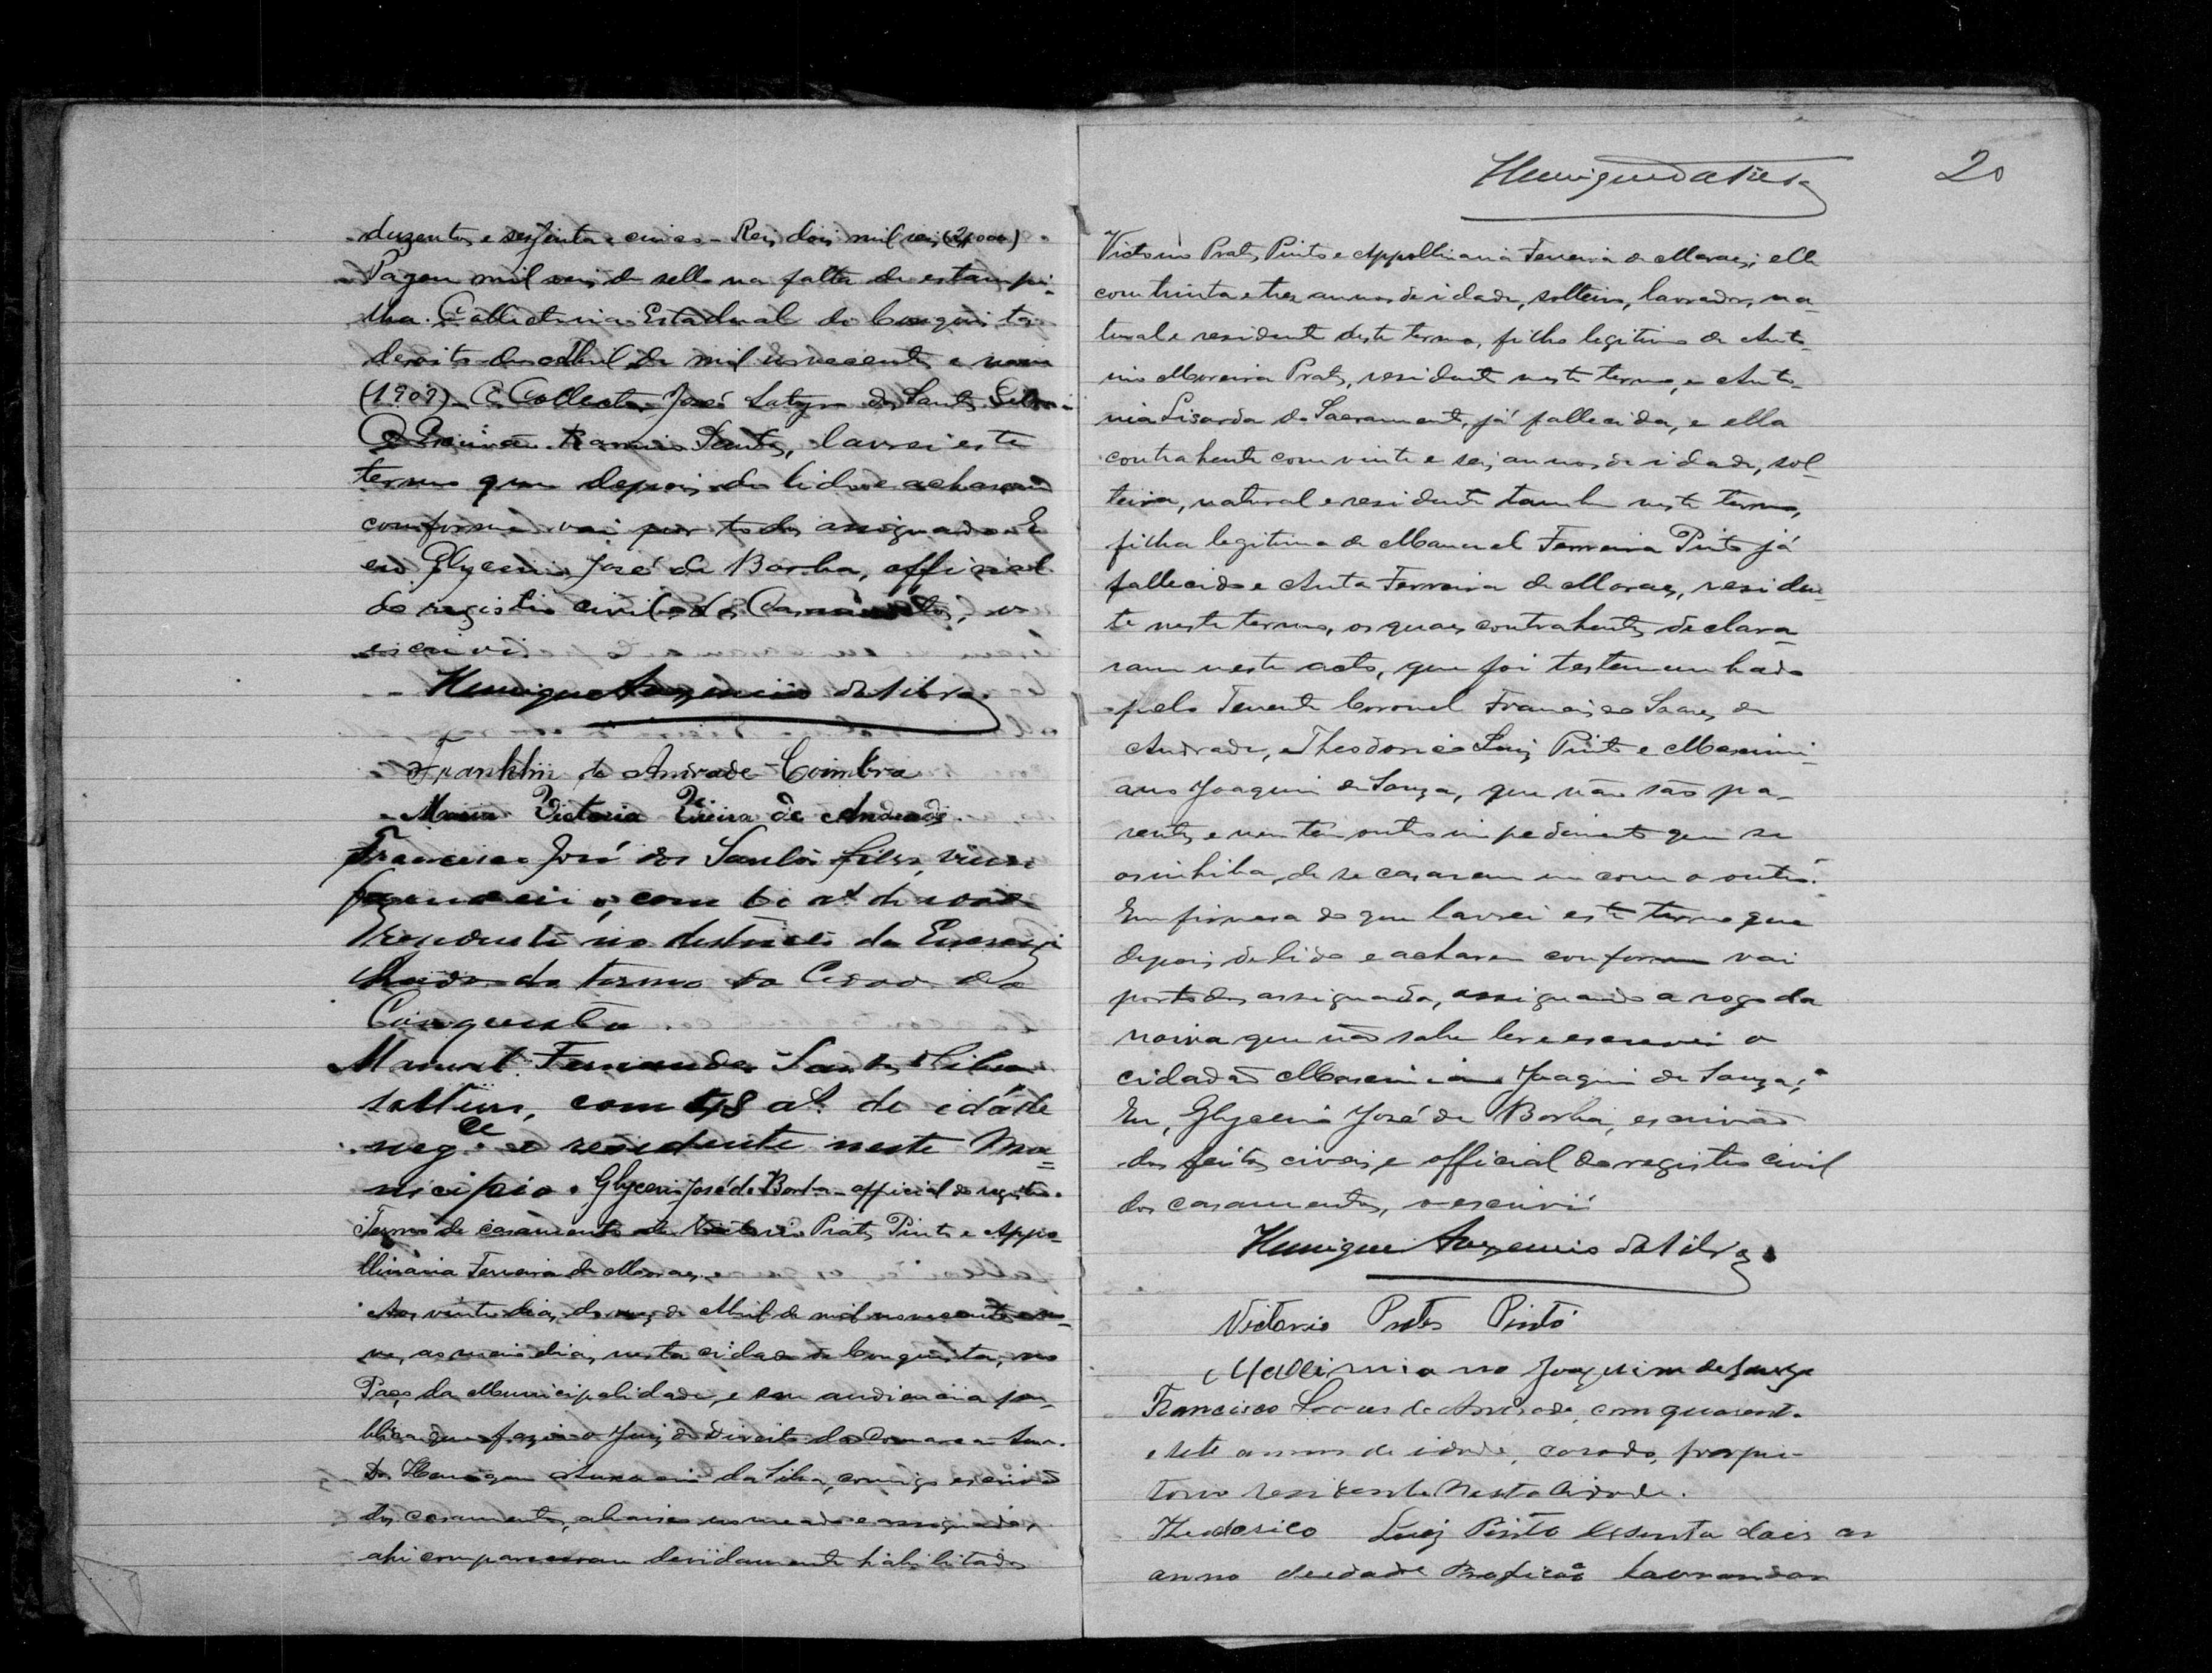 duzentos e sessenta e cinco - Reis dois mil reis (2$000)
Pagou mil reis de sello na falta de estampi-
lha. Collectoria Estadual de Conquista
dezoito de Abril de mil novecentos e nove
(1909). O Collector José Satyro dos Santos Silva
O Escrivão Ramiro Santos, lavrei este
termo que depois de lido e acharem
conforme vai por todos assignado. E
eu Glycerio José de Borba, official
do registro civil dos Casamentos, o
escrivi.
Henrique Auxencio da Silva
Franklin de Andrade Coimbra
Maria Victoria Vieira de Andrade.
Francisco José dos Santos Silva, viuvo
fazendeiro, com 61 as. de idade
residente no districto da
do termo da Cidade da
Conquista.
Manoel Fernandes Santos Silva
solteiro, com 48 as. de idade
neg.ce e residente neste Mu=
nicipio. Glycerio José de Borba - official do registro.
Termo de casamento de Victorio Prates Pinto e Appo-
llinaria Ferreira de Moraes.
Aos vinte dias do mez de Abril de mil novecentos e no-
ve, ao meio dia, nesta cidade de Conquista, no
Paço da Municipalidade, e em audiencia pu-
blica que fazia o Juiz de Direito da Comarca
Dr. Henrique Auxencio da Silva, comigo escrivão
dos casamentos, abaixo nomeado e assignado,
ahi compareceram devidamente habilitados
Henrique da Silva
20
Victorio Prates Pinto e Appollinaria Ferreira de Moraes; elle
com trinta e tres annos de idade, solteiro, lavrador, na-
tural e residente deste termo, filho legitimo de Anto-
nio Moreira Prates, residente neste termo, e Anto-
nia Lisarda do Sacramento, já fallecida, e ella
contrahente com vinte e seis annos de idade, sol-
teira, natural e residente tambem neste termo,
filha legitima de Manoel Ferreira Pinto já
fallecido e Anta Ferreira de Moraes, residen-
te neste termo, os quaes contrahentes declara-
ram neste acto, que foi testemunhado
pelo Tenente Coronel Francisco Soares de
Andrade, Theodorico Luiz Pinto e Maximi-
ano Joaquim de Souza, que não são pa-
rentes e nem têm outro impedimento que se
os inhiba de se casarem um com o outro.
Em firmesa do que lavrei este termo que
depois de lido e acharem conforme vai
por todos assignado, assignando a rogo da
noiva que não sabe ler e escrever o
cidadão Maximiano Joaquim de Souza;
Eu, Glycerio José de Borba, escrivão
dos feitos civeis e official do registro civil
dos casamentos, o escrivi
Henrique Auxencio da Silva
Victorio Prates Pinto
Maximiano Joaquim de Souza
Francisco Soares de Andrade, com quarenta
e sete annos de idade, casado, propri-
tario residente nesta Cidade.
Theodorico Luiz Pinto cesenta dois an
anno deidade Profição Lavrandor